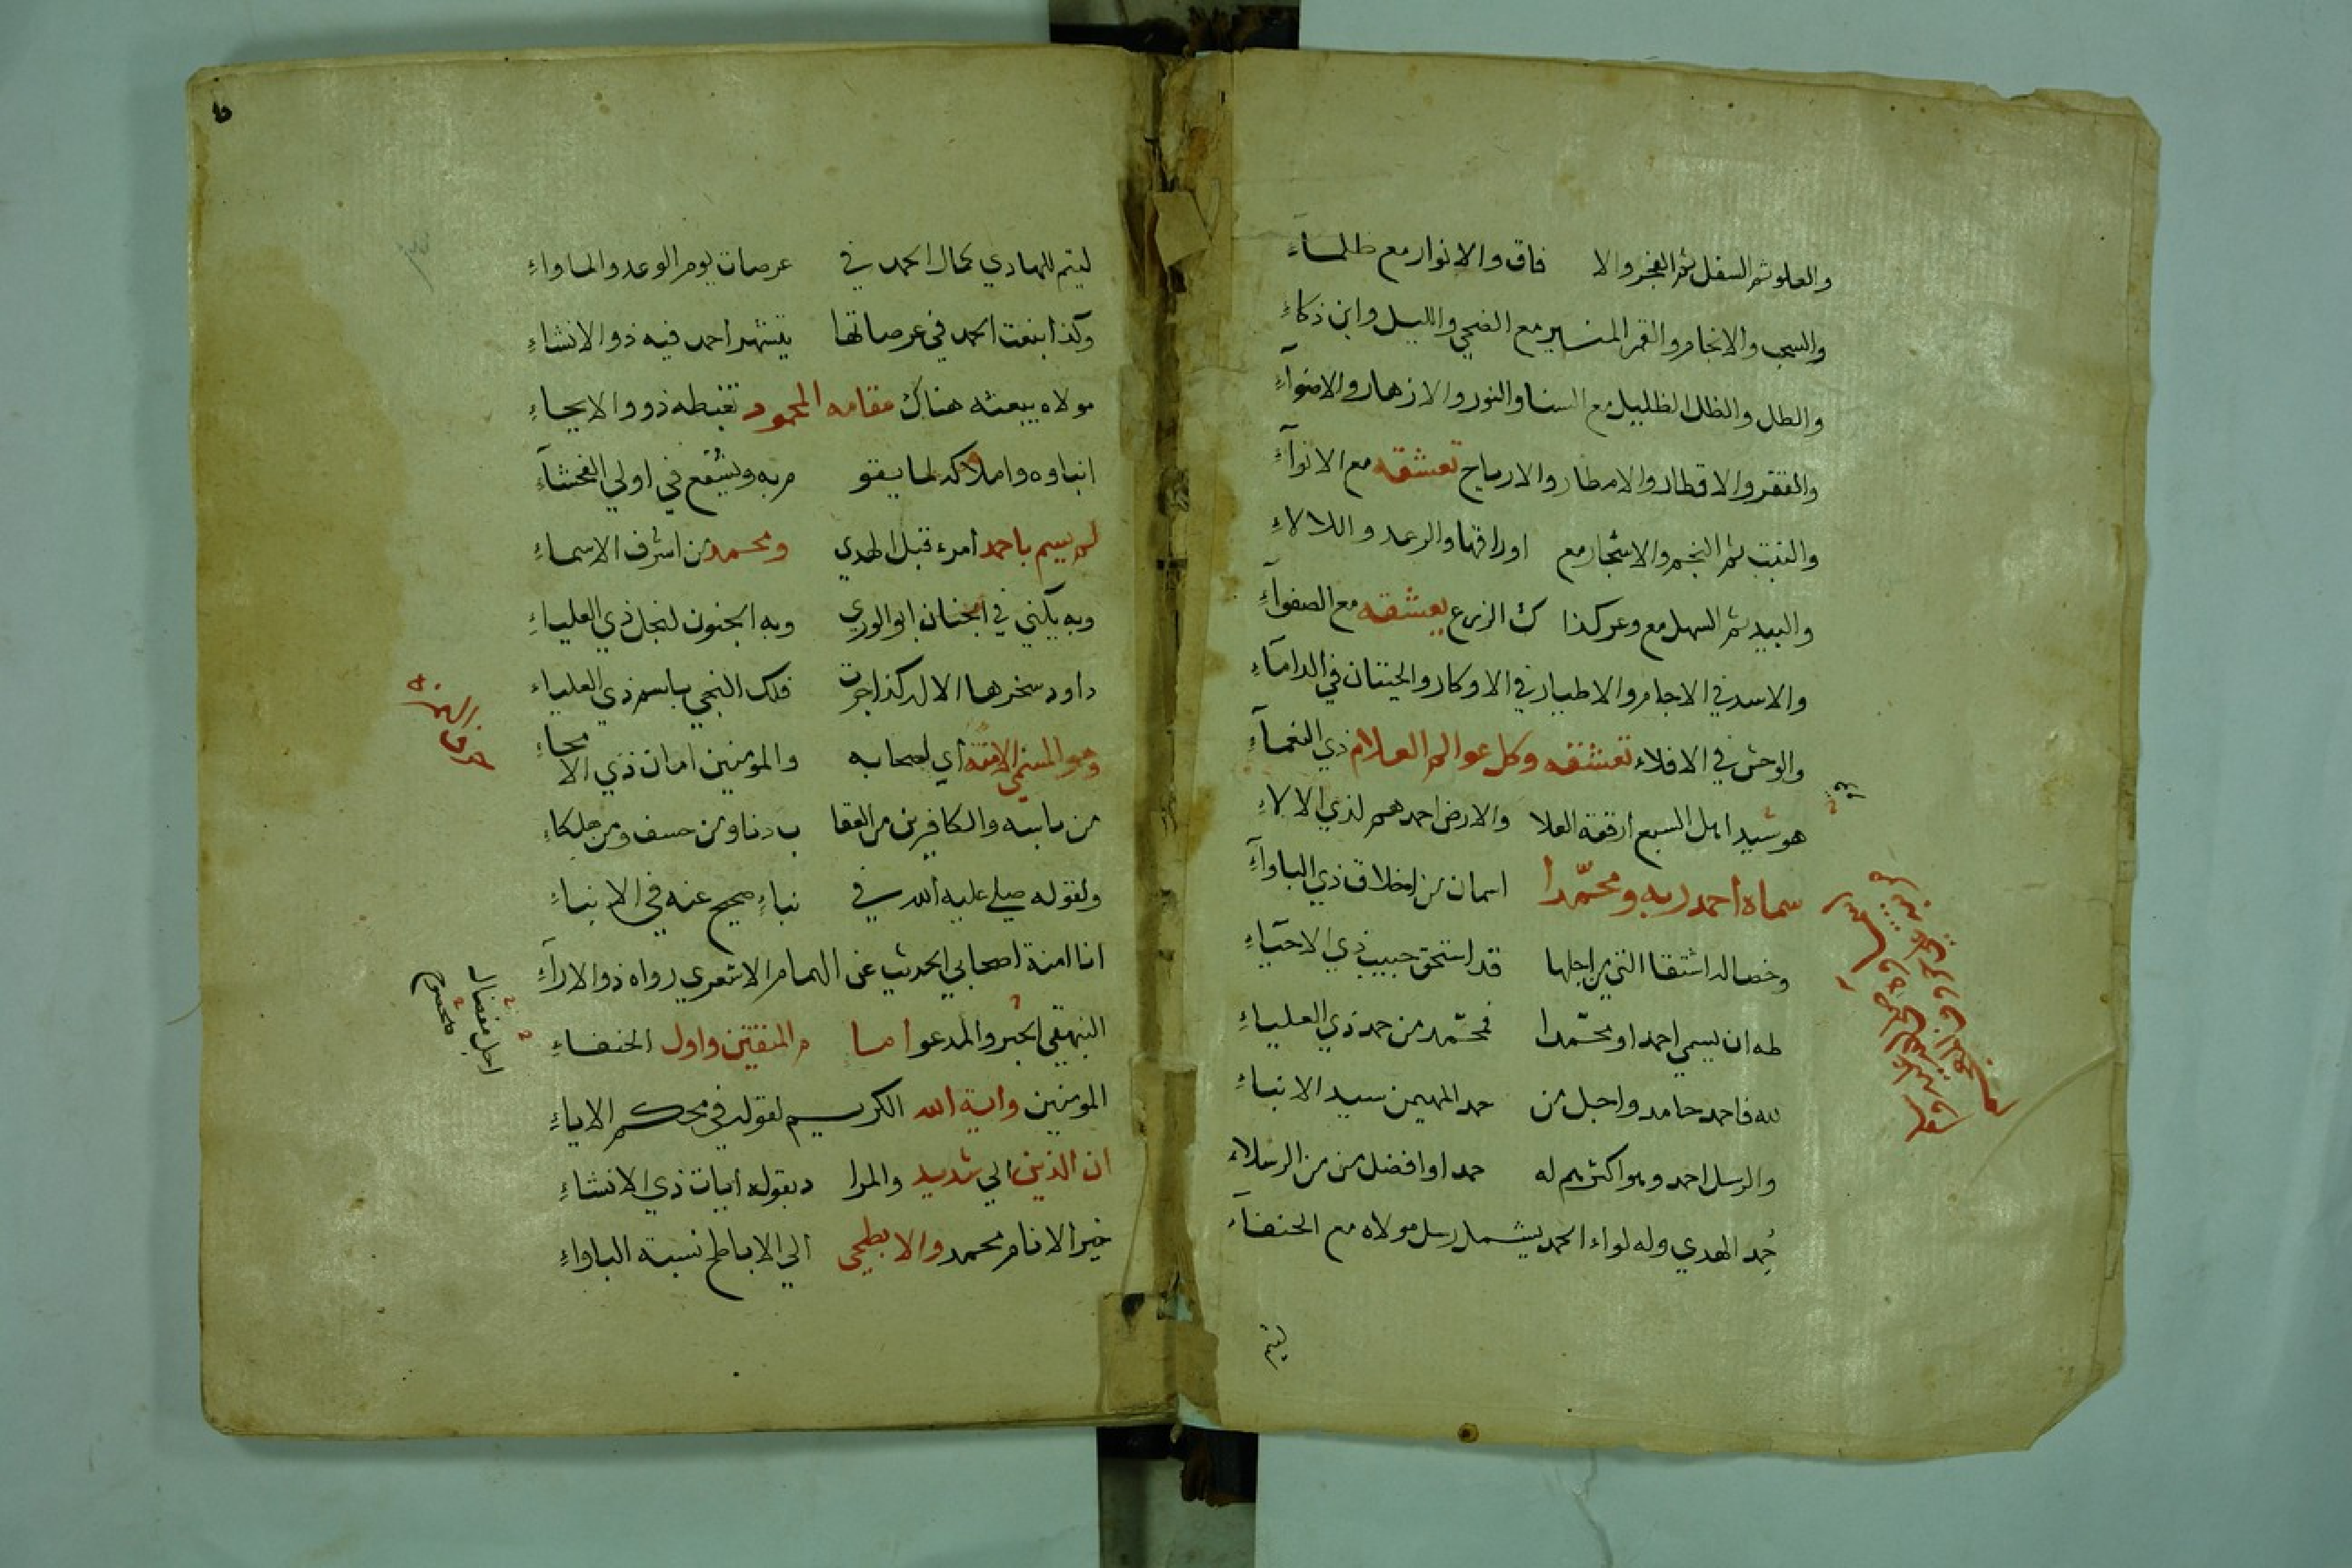 والعلو ثم السفل ثم الفجر والا فاق والانوار مع ظلماء
والسحب والانجام والقمر المنير مع الضحي والليل وابن ذكاء
والطل والظل الظليل مع السنا والنور والازهار والاضوآء
والقفر والاقطار والامطار والارياح تعشقه مع الانوآء
والنبت ثم النجم والاشجار مع اوراقها والرعد واللالاء
والبيد ثم السهل مع وعر كذا ك الزرع يعشقه مع الصفوآء
والاسد في الاجام والاطيار في الاوكار والحيتان في الدامآء
والوحش في الافلاء تعشقه وكل عوالم العلام ذي النعمآء
هو سيد اهل السبع ارقعة العلا والارض احمدهم لذي الالاء
سماه احمد ربه ومحمّدا اسمان من اخلاق ذي الباوآء
وخصاله اشتقا التي من اجلها قد استحق حبيب ذي الاحيآء
طه ان يسمي احمد او محمّدا فمحمّد من حمد ذي العلياء
لله فاحمد حامد واجل من حمد المهيمن سيد الانباء
والرسل احمد وهو اكثرهم له حمدا وافضل من من الرسلاء
حُمد الهدي وله لواء الحمد يشمل رسل مولاه مع الحنفآء
ليتم
ليتم للهادي كمال الحمد في عرصات يوم الوعد والماواء
وكذا بنعت الحمد في عرصاتها يتشهر احمد فيه ذو الانشاء
مولاه يبعثه هناك مقامه المحمود تغبطه ذوو الايحاء
انباوه واملاكه لما يقو م به ويشفع في اولي الفحشآء
لم يسم باحمد امرء قبل الهدي ومحمد من اشرف الاسماء
وبه يكني في الجنان ابو الوري وبه الجنون لنجل ذي العلياء
داود سخرها الاله كذا جرت فلك النجي باسم ذي العلياء
وهو المسمي الامنة اي لصحابه والمومنين امان ذي الامحاء
من باسه والكافرين من العقا ب دنا ومن خسف ومن هلكاء
ولقوله صلي عليه الله في نباء صحيح عنه في الانباء
انا امنة اصحابي الحديث عن الهمام الاشعري رواه ذو الارآء
البيهقي الحبر والمدعو اما م المتقين واول الحنفاء
المومنين واية الله الكريم لقوله في محكم الاياء
ان الذين الي شديد والمرا د بقوله ايات ذي الانشاء
خير الانام محمد والابطحي الي الاباطح نسبة الباواء